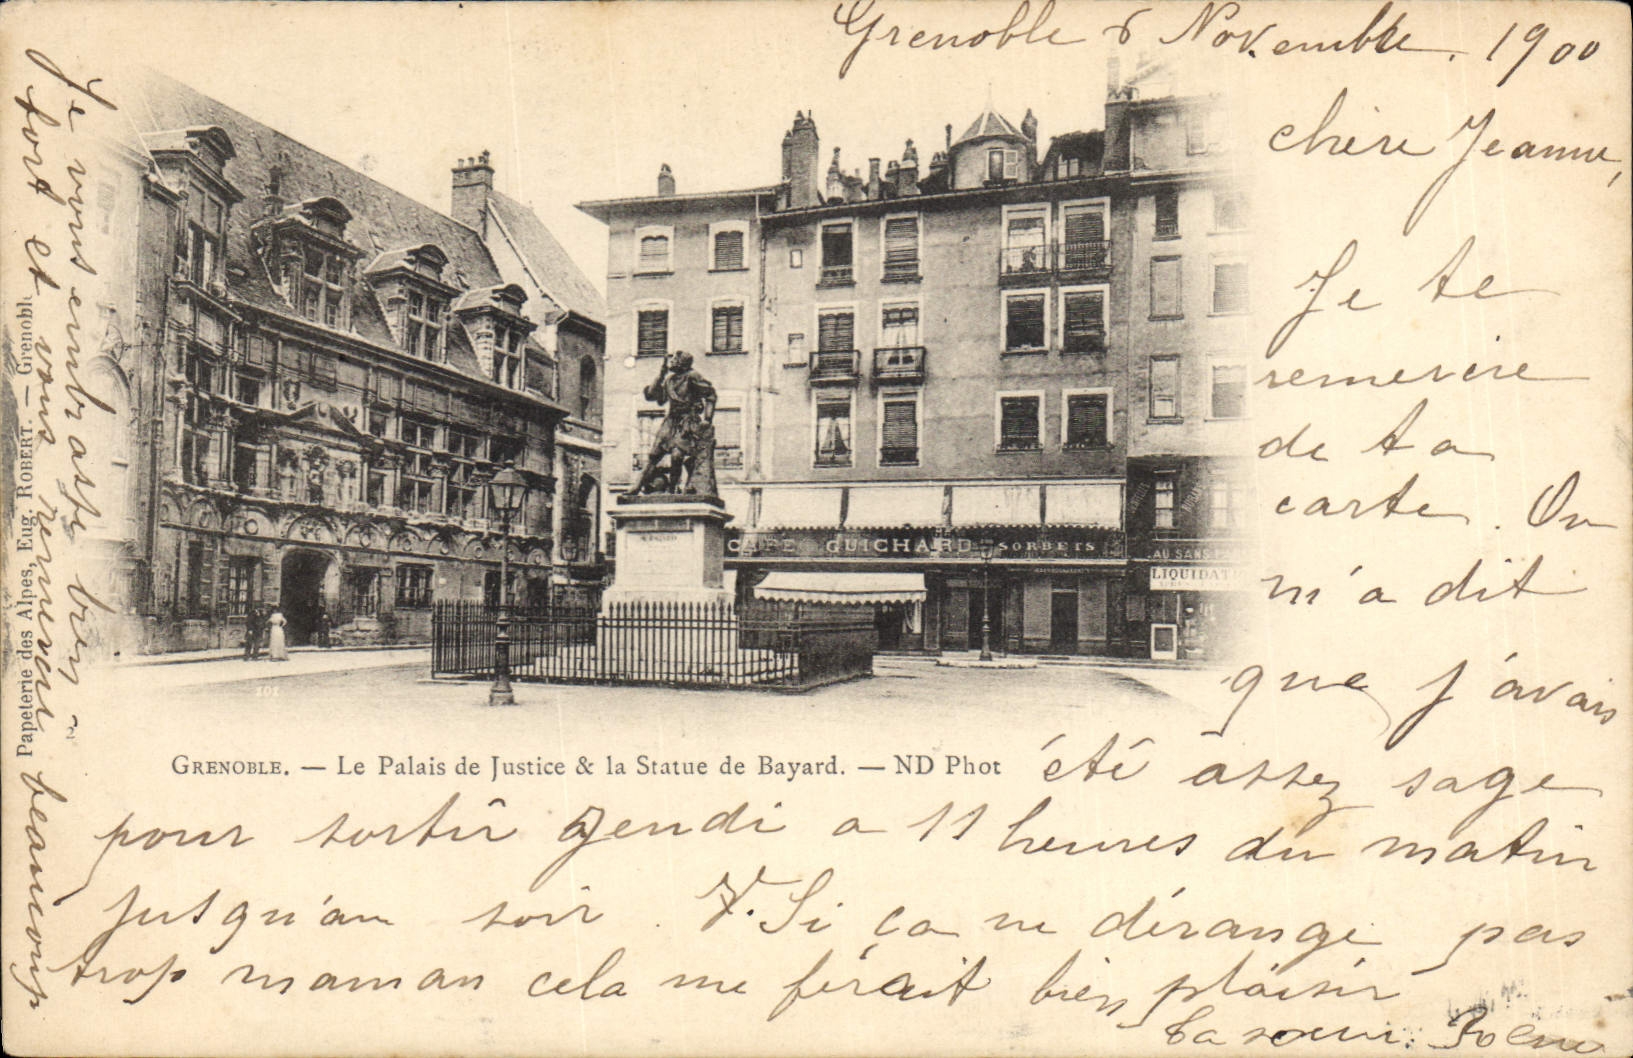 Grenoble 6 Novembre. 1900
chère Jeanne,
Je te
remercire
de ta
carte. On
m'a dit
que j'avais
été assez sage
pour sortir Jeudi a 11 heures du matin
jusqu'au soir. Si ça ne dérange pas
trop maman cela me ferait bien plaisir
Ta soeur
Je vous embrasse bien
fort et vous remercie beaucoup
Papeterie des Alpes, Eug. ROBERT. — Grenobl
CAFE GUICHARD SORBETS
AU SANS PAR
LIQUIDATI
BAYARD
101
GRENOBLE. — Le Palais de Justice & la Statue de Bayard. — ND Phot